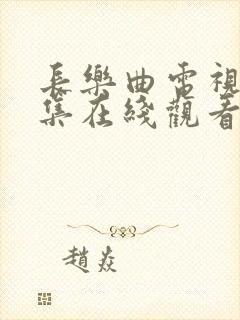 長樂曲電視
集在綫觀看
趙焱